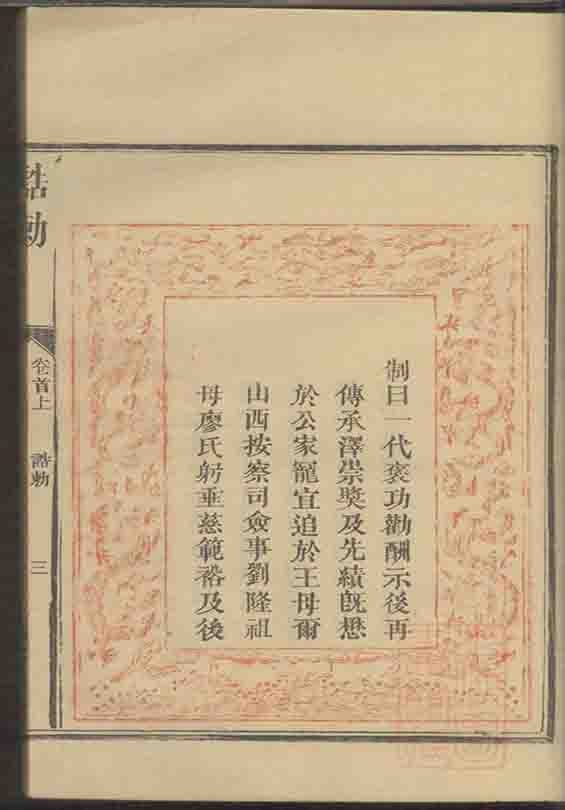 制曰一代褒功勸酬示後再
傳承澤崇奬及先績旣懋
於公家寵宜追於王母爾
山西按察司僉事劉隆祖
母廖氏躬垂慈範裕及後
誥勅
卷首上 誥勅 三